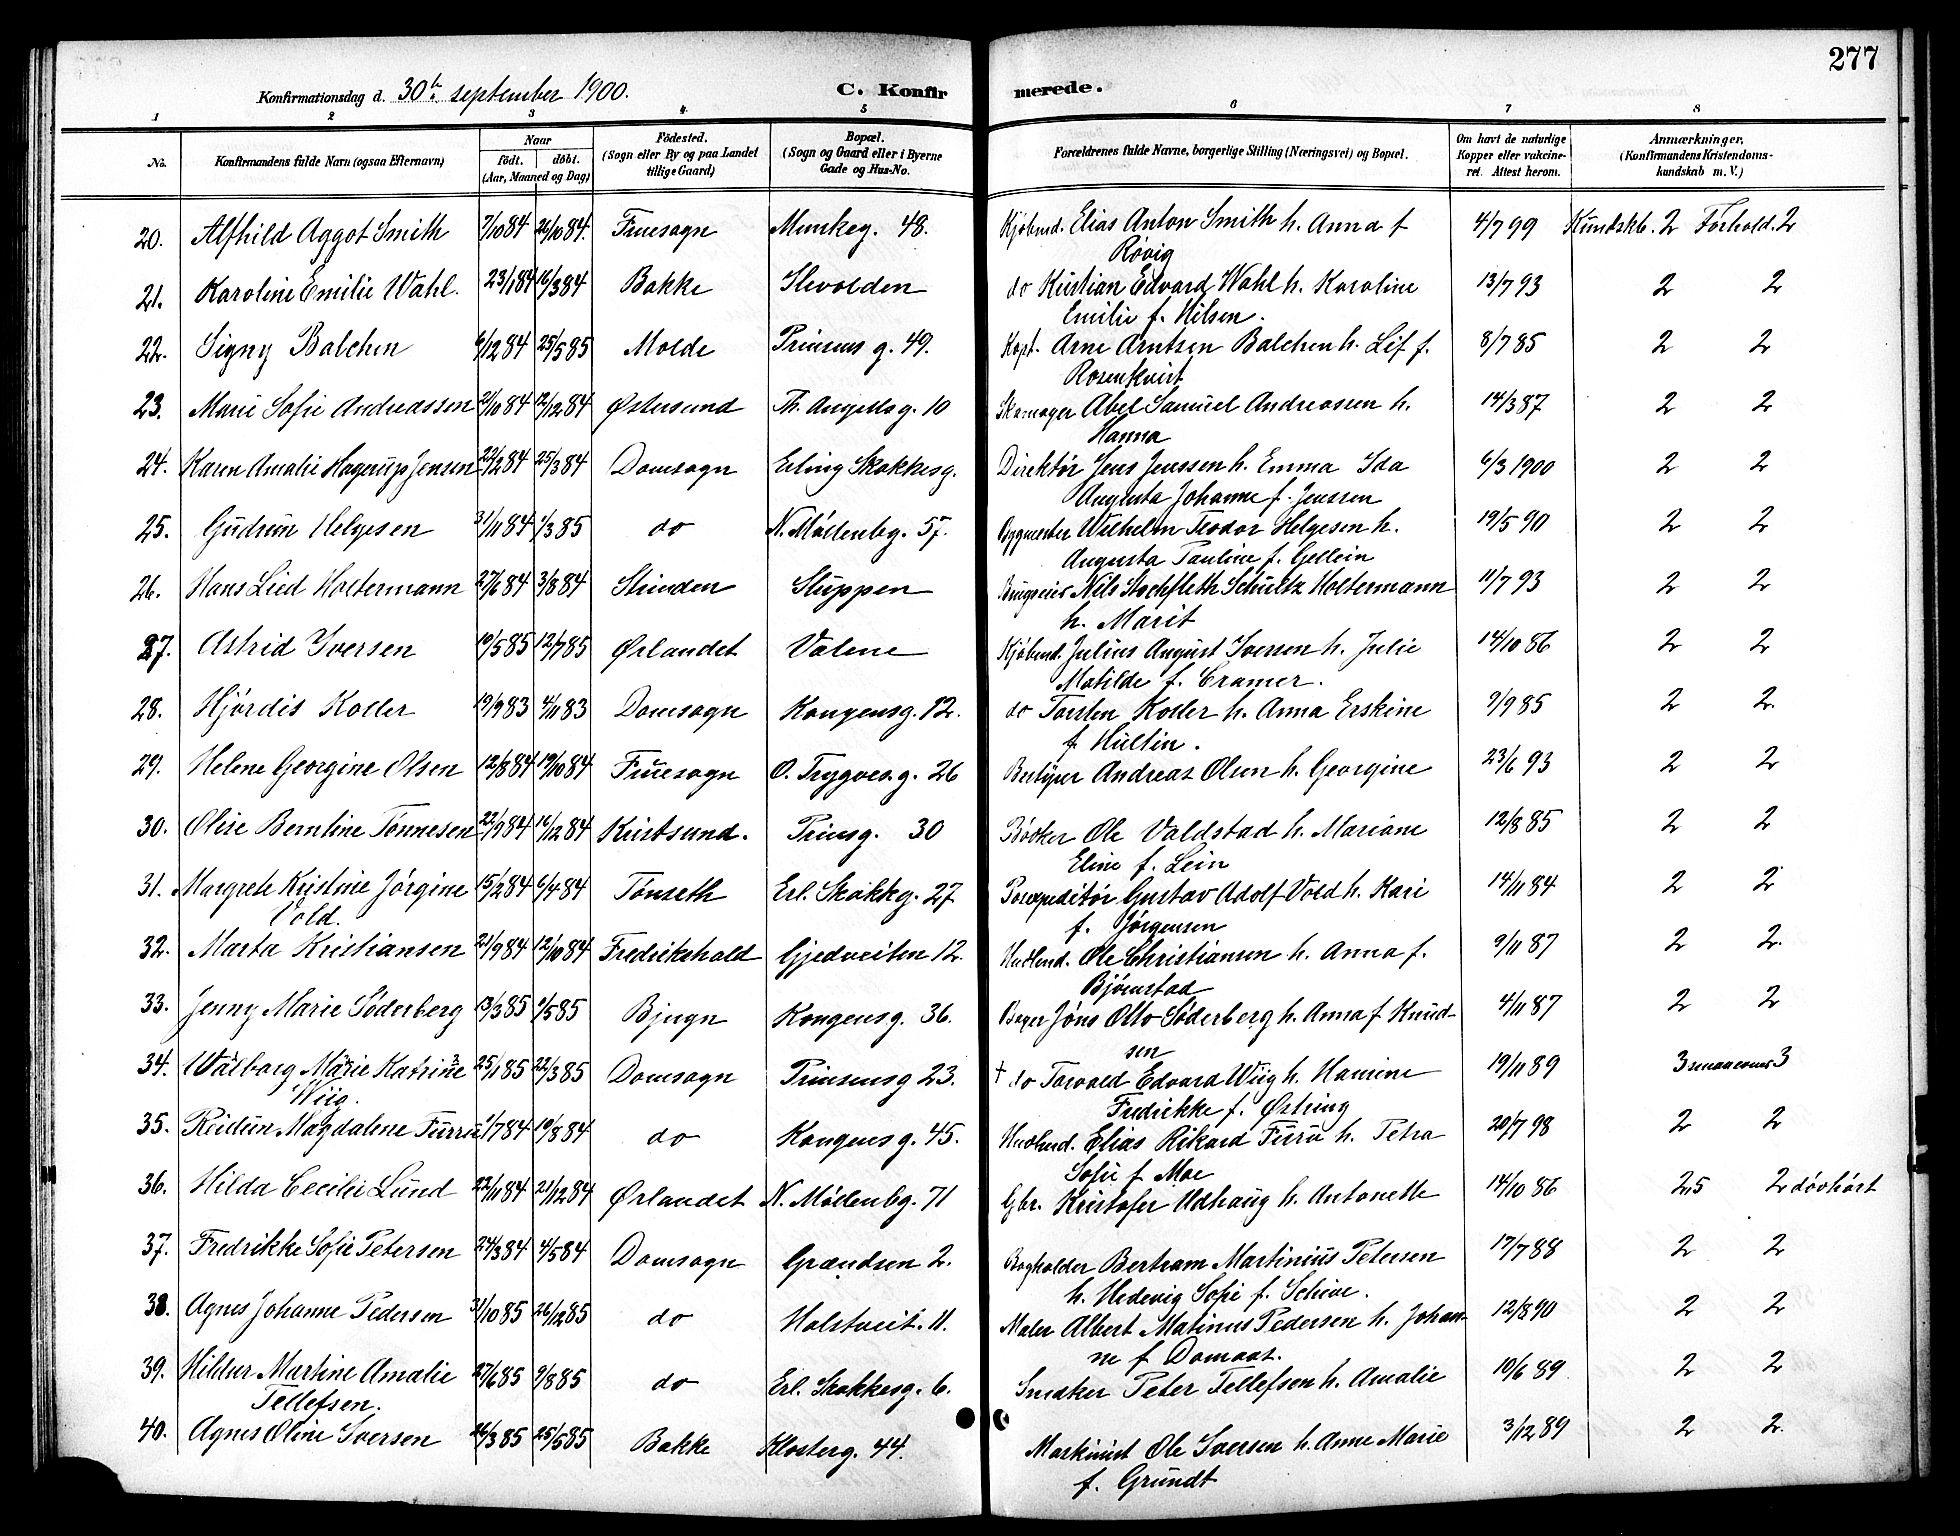 277
Konfirmationsdag d. 30te september 1900. C. Konfirmerede.
1 2 3 4 5 6 7 8
No. Konfirmandens fulde Navn (ogsaa Efternavn) Naar født. døbt. (Aar, Maaned og Dag) Fødested. (Sogn eller By og paa Landet tillige Gaard) Bopæl. (Sogn og Gaard eller i Byerne Gade og Hus-No. Forældrenes fulde Navne, borgerlige Stilling (Næringsvei) og Bopæl. Om havt de naturlige Kopper eller vakcineret. Attest herom. Anmærkninger, (Konfirmandens Kristendomskundskab m. V.)
20. Alfhild Aggot Smith 7/10 84 26/10 84. Fruesogn Munkeg. 48. Kjøbmd. Elias Anton Smith h. Anna f 4/7 99 Kundskb. 2 Forhold. 2
Røvig
21. Karoline Emilie Wahl. 23/1 84 16/3 84 Bakke Ilevolden do Kristian Edvard Wahl h. Karoline 13/7 93 2 2
Emilie f. Nilsen.
22. Signy Balchen 6/12 84 25/5 85 Molde Prinsens g. 49. Kapt. Arne Arntsen Balchen h. Lif f. 8/7 85 2 2
Rosenkvist
23. Marie Sofie Andreassen 2/10 84 12/12 84 Østersund Th. Angellsg. 10 Skomager Abel Samuel Andreassen h. 14/3 87 2 2
Hanna
24. Karen Amalie Hagerup Jensen 22/2 84 25/3 84 Domsogn Erling Skakkesg. Direktør Jens Jenssen h. Emma Ida 6/3 1900 2 2
Augusta Johanne f. Jenssen
25. Gudrun Helgesen 3/11 84 1/3 85 do N. Møllenbg. 57. Bygmester Wilhelm Teodor Helgesen h. 19/5 90 2 2
Augusta Pauline f. Gellein
26. Hans Lied Holtermann 27/6 84 3/8 84 Strinden Sluppen Brugseier Nils Stochfleth Schultz Holtermann 11/7 93 2 2
h. Marit
27. Astrid Iversen 19/5 85 12/7 85 Ørlandet Valene Kjøbmd. Julius August Iversen h. Julie 14/10 86 2 2
Matilde f. Cramer.
28. Hjørdis Koller 19/9 83 4/11 83 Domsogn Kongensg. 12. do Torsten Koller h. Anna Erskine 9/9 85 2 2.
f. Hultin.
29. Helene Georgine Olsen 12/8 84 19/10 84 Fruesogn O. Trygvesg. 26 Andreas Olsen h. Georgine 23/6 93 2 2
30. Olise Berntine Tønnesen 22/9 84 14/12 84 Kristsund. Prinsg. 30 Bødker Ole Valdstad h. Mariane 12/8 85 2 2
Eline f. Lein
31. Margrete Kristine Jørgine 15/2 84 6/4 84 Tønseth Erl. Skakkg. 27 Posexpeditør Gustav Adolf Vold h. Kari 14/11 84 2 2
Vold. f. Jørgensen
32. Marta Kristiansen 21/9 84 12/10 84 Fredrikshald Gjedveiten 12. Hndlend. Ole Christiansen h. Anna f. 9/11 87 2 2.
Bjørnstad
33. Jenny Marie Søderberg 13/3 85 9/5 85 Bjugn Kongensg. 36. Bager Jøns Otto Søderberg h. Anna f Knud- 4/11 87 2 2
sen
34. Walborg Marie Katrine 25/1 85 22/3 85 Domsogn Prinsensg 23. † do Torvald Edvard Wiig h. Hanine 19/11 89 3 smaaevner 3
Wiig. Fredrikke f. Østring
35. Reidun Magdalene Furru 1/7 84 10/8 84 do Kongensg. 45. Hndlend. Elias Rikard Furu h. Petra 20/7 98 2 2
Sofie f Moe
36. Hilda Cecilie Lund 22/11 84 21/12 84 Ørlandet N. Møllenbg. 71 Gbr. Kristofer Udhaug h. Antonette 14/10 86 2,5 2 døvhørt
37. Fredrikke Sofie Petersen 24/3 84 4/5 84 Domsogn Grændsen 2. Bogholder Bertram Martinius Petersen 17/7 88 2 2
h. Hedevig Sofie f. Schive.
38. Agnes Johanne Pedersen 31/10 85 26/12 85 do Holstveit. 11. Maler Albert Matinus Pedersen h. Johan- 12/8 90 2 2
ne f Domaas.
39. Hildur Martine Amalie 27/6 85 9/8 85 do Erl. Skakkesg. 6. Snedker Peter Tellefsen h. Amalie 10/6 89 2 2
Tellefsen.
40. Agnes Oline Iversen 26/3 85 25/5 85 Bakke Klosterg. 44. Maskinist Ole Iversen h. Anne Marie 3/12 89 2 2.
f. Grundt